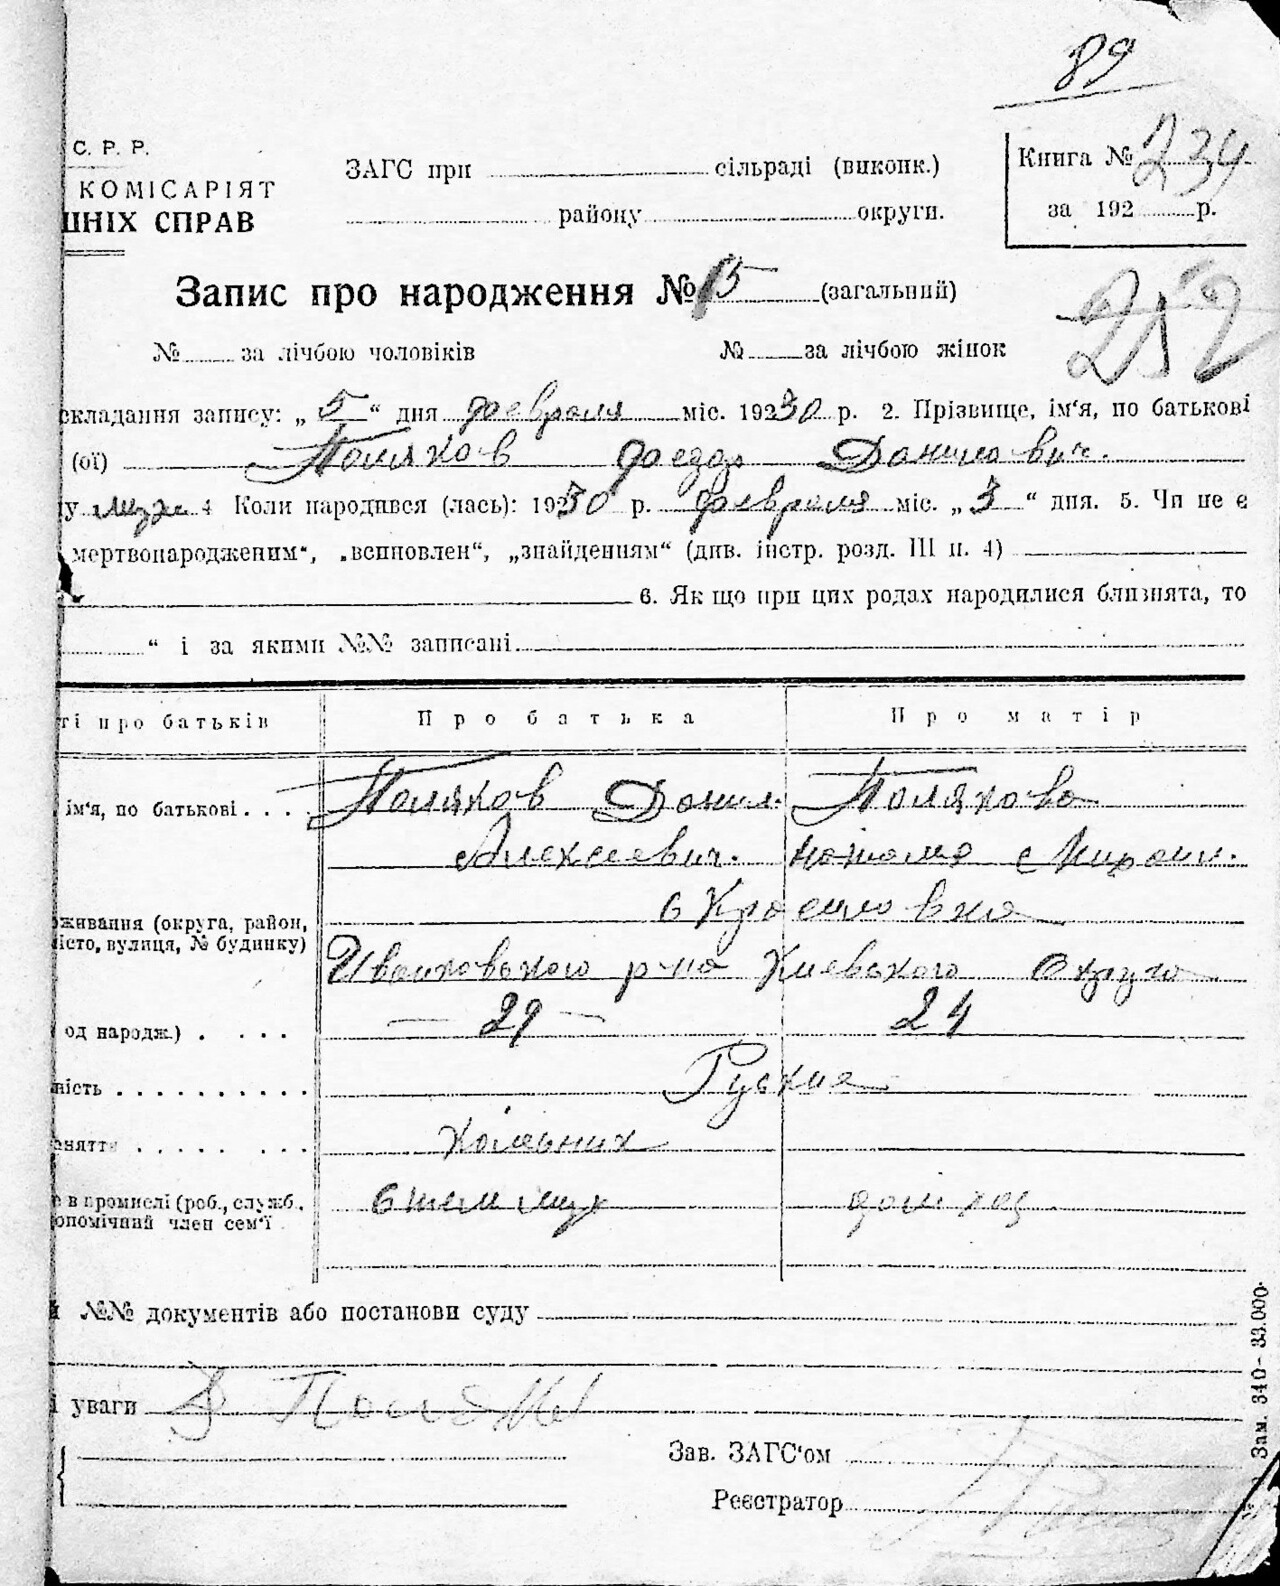 89
С. Р. Р.
КОМІСАРІЯТ
ШНІХ СПРАВ
ЗАГС при сільраді (виконк.)
району округи.
Книга № 234
за 192 р.
Запис про народження № 15 (загальний)
252
№ за лічбою чоловіків № за лічбою жінок
складання запису: „ 5 “ дня февраля міс. 19230 р. 2. Прізвище, ім‘я, по батькові
(ої) Поляков Федор Данилович.
у муж 4 Коли народився (лась): 1930 р. февраля міс. „ 3 “ дня. 5. Чи не є
мертвонародженим“, „вспновлен“, „знайденням“ (див. інстр. розд. III п. 4)
6. Як що при цих родах народилися близнята, то
“ і за якими №№ записані
ті про батьків Про батька Про матір
ім‘я, по батькові . . . . Поляков Данил. Полякова
Алексеевич. Наталия Михаил.
оживання (округа, район, с Красиловка
місто, вулиця, № будинку)
Иванковского р-на Киевского Округа
од народж.) . . . . 29 24
ність . . . . . . . . . . Руские
аняття . . . . . . . .
е в промислі (роб., служб.,
опомічний член сем‘ї
й №№ документів або постанови суду
і уваги
Зав. ЗАГС‘ом
Реєстратор
Зам. 340- 33.000.